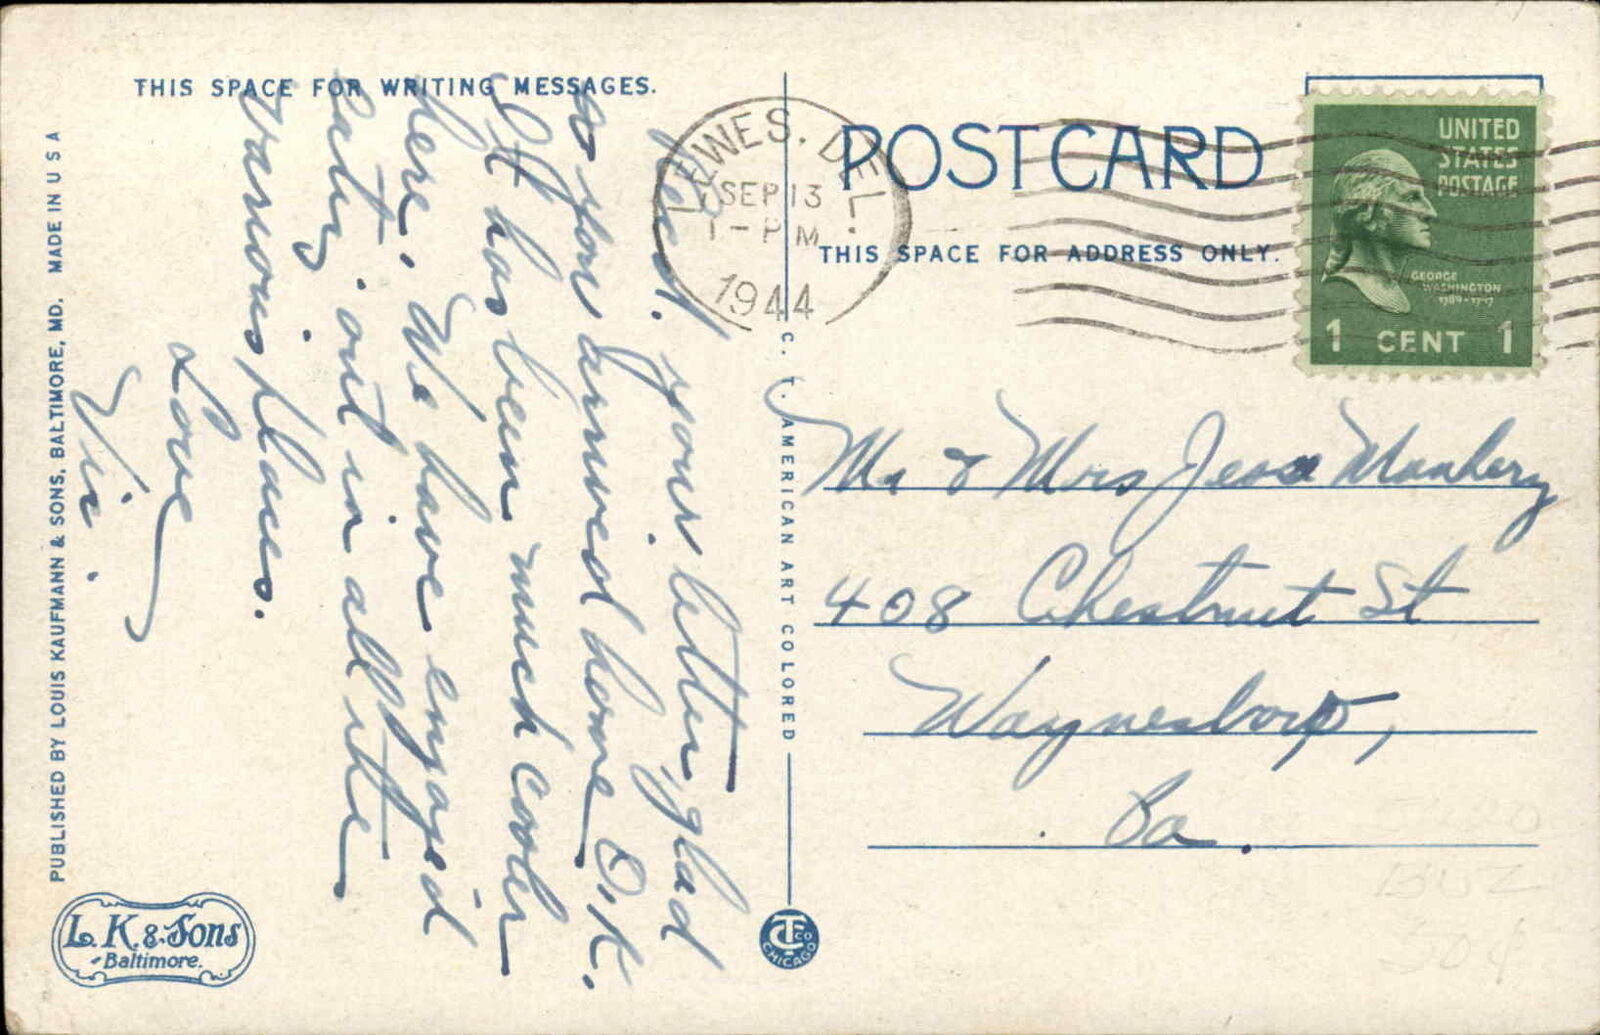 THIS SPACE FOR WRITING MESSAGES.
Rec'd. your letter, glad
so you arrived home O.K.
It has been much cooler
here. We have enjoyed
eating out in all the
various places.
Love
Vi.
PUBLISHED BY LOUIS KAUFMANN & SONS, BALTIMORE, MD. MADE IN U S A
L. K. & Sons
Baltimore.
C. T. AMERICAN ART COLORED
CT CO
CHICAGO
LEWES. DEL.
SEP 13
1 - PM
1944
POSTCARD
THIS SPACE FOR ADDRESS ONLY.
UNITED
STATES
POSTAGE
GEORGE
WASHINGTON
1789-1797
1 CENT 1
Mr & Mrs Jesse
408 Chestnut St
Waynesboro,
Pa.
50¢